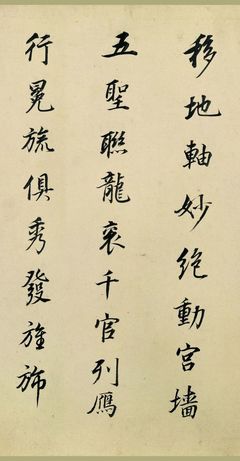 移地軸妙絶動宮墻
五聖聯龍衮千官列鴈
行冕旒俱秀發旌斾